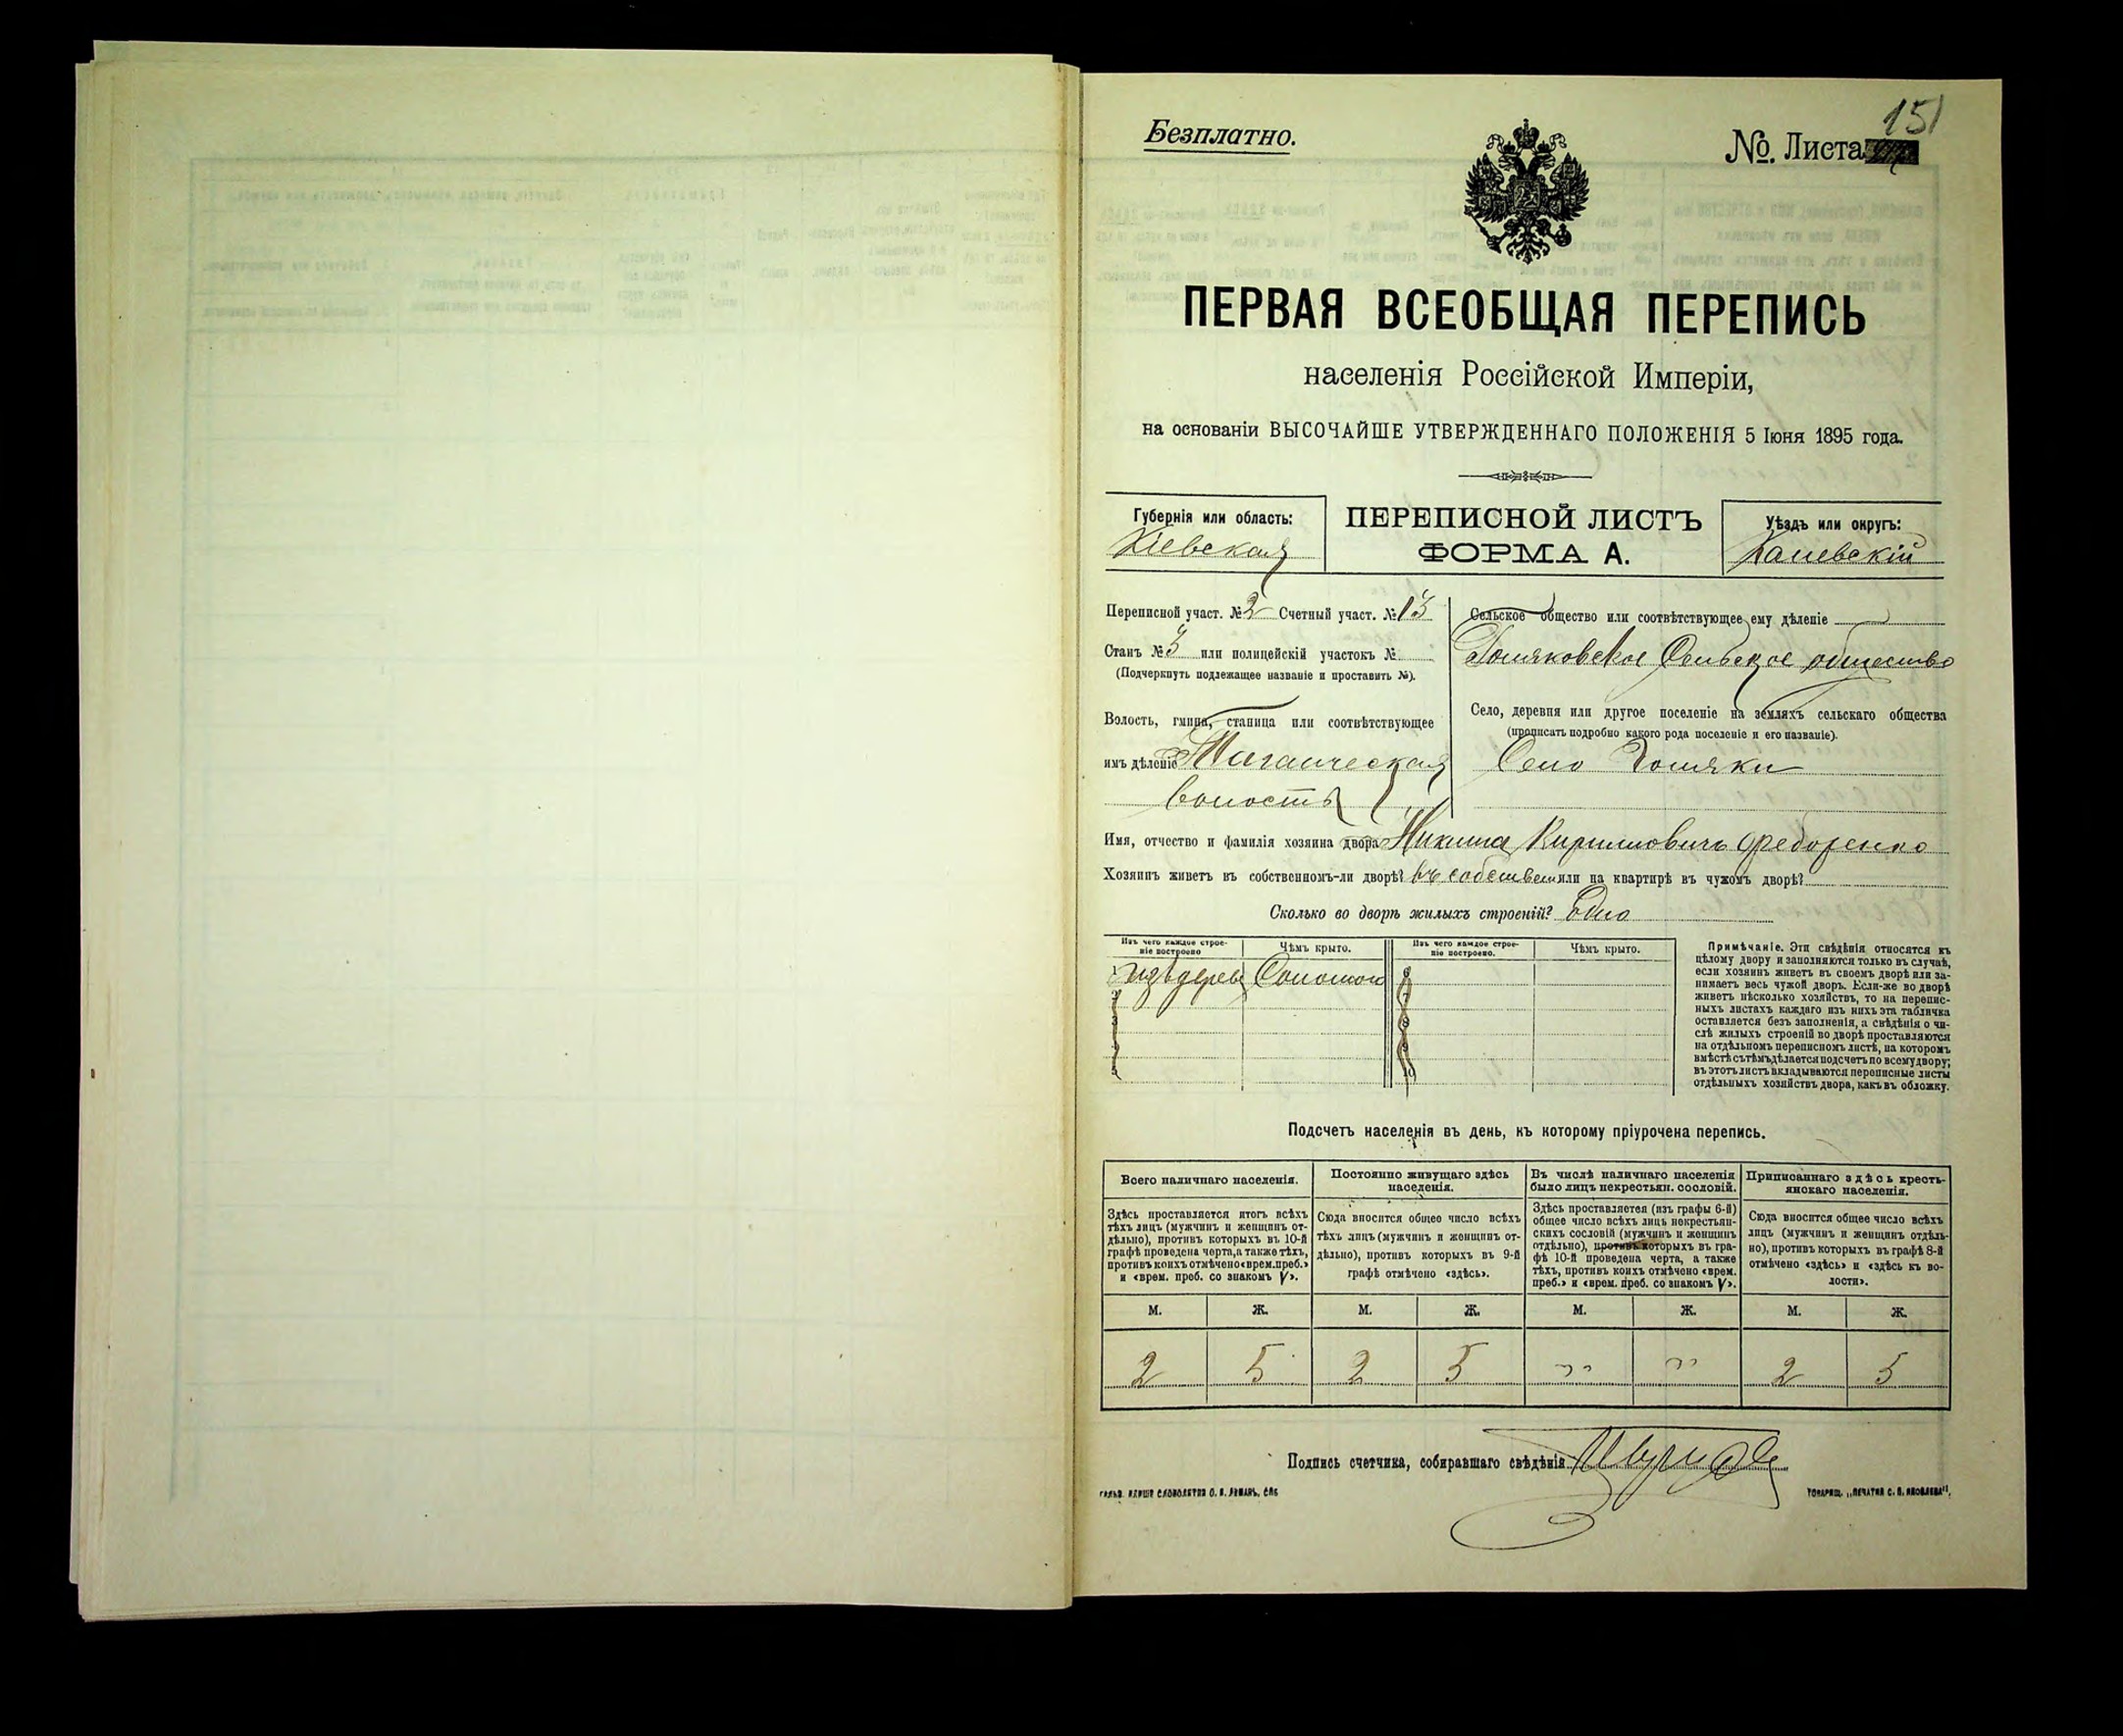 Безплатно.
№. Листа 151
ПЕРВАЯ ВСЕОБЩАЯ ПЕРЕПИСЬ
населенія Россійской Имперіи,
на основаніи ВЫСОЧАЙШЕ УТВЕРЖДЕННАГО ПОЛОЖЕНІЯ 5 Іюня 1895 года.
Губернія или область:
Кіевская
ПЕРЕПИСНОЙ ЛИСТЪ
ФОРМА А.
Уѣздъ или округъ:
Каневскій
Переписной участ. № 2 Счетный участ. № 13
Станъ № 3 или полицейскій участокъ №
(Подчеркнуть подлежащее названіе и проставить №).
Волость, гмина, станица или соотвѣтствующее
имъ дѣленіе
волость
Сельское общество или соотвѣтствующее ему дѣленіе
Сельское общество
Село, деревня или другое поселеніе на земляхъ сельскаго общества
(прописать подробно какого рода поселеніе и его названіе).
Село
Имя, отчество и фамилія хозяина двора Никита Кирилловичъ
Хозяинъ живетъ въ собственномъ-ли дворѣ? въ собствен или на квартирѣ въ чужомъ дворѣ?
Сколько во дворѣ жилыхъ строеній? Одно
Изъ чего каждое строе-
ніе построено
Чѣмъ крыто.
Изъ чего каждое строе-
ніе построено.
Чѣмъ крыто.
изъ дерева Соломою
2
3
5
6
7
8
9
10
Примѣчаніе. Эти свѣдѣнія относятся къ
цѣлому двору и заполняются только въ случаѣ,
если хозяинъ живетъ въ своемъ дворѣ или за-
нимаетъ весь чужой дворъ. Если-же во дворѣ
живетъ нѣсколько хозяйствъ, то на перепис-
ныхъ листахъ каждаго изъ нихъ эта табличка
оставляется безъ заполненія, а свѣдѣнія о чи-
слѣ жилыхъ строеній во дворѣ проставляются
на отдѣльномъ переписномъ листѣ, на которомъ
вмѣстѣ съ тѣмъ дѣлается подсчетъ по всему двору;
въ этотъ листъ вкладываются переписные листы
отдѣльныхъ хозяйствъ двора, какъ въ обложку.
Подсчетъ населенія въ день, къ которому пріурочена перепись.
Всего наличнаго населенія.
Постоянно живущаго здѣсь
населенія.
Въ числѣ наличнаго населенія
было лицъ некрестьян. сословій.
Приписаннаго здѣсь кресть-
янскаго населенія.
Здѣсь проставляется итогъ всѣхъ
тѣхъ лицъ (мужчинъ и женщинъ от-
дѣльно), противъ которыхъ въ 10-й
графѣ проведена черта, а также тѣхъ,
противъ коихъ отмѣчено «врем. преб.»
и «врем. преб. со знакомъ V».
Сюда вносится общее число всѣхъ
тѣхъ лицъ (мужчинъ и женщинъ от-
дѣльно), противъ которыхъ въ 9-й
графѣ отмѣчено «здѣсь».
Здѣсь проставляется (изъ графы 6-й)
общее число всѣхъ лицъ некрестьян-
скихъ сословій (мужчинъ и женщинъ
отдѣльно), противъ которыхъ въ гра-
фѣ 10-й проведена черта, а также
тѣхъ, противъ коихъ отмѣчено «врем.
преб.» и «врем. преб. со знакомъ V».
Сюда вносится общее число всѣхъ
лицъ (мужчинъ и женщинъ отдѣль-
но), противъ которыхъ въ графѣ 8-й
отмѣчено «здѣсь» и «здѣсь къ во-
лости».
М. Ж. М. Ж. М. Ж. М. Ж.
2 5 2 5 " " 2 5
Подпись счетчика, собиравшаго свѣдѣнія
ТОВАРИЩ. „ПЕЧАТНЯ С. П. ЯКОВЛЕВА".